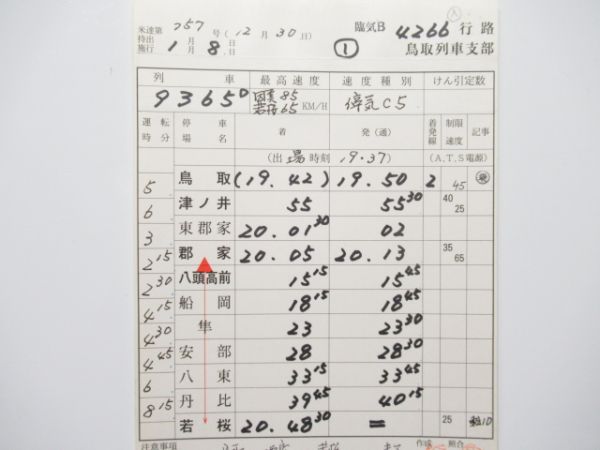 米達第 757 号 (12月30日) 臨気B 4266 行路
待出
施行 1月8日 ① 鳥取列車支部
列車 最高速度 速度種別 けん引定数
9365D 因美85 若桜65 KM/H 停気C5
運転時分 停車場名 着 発(通) 着発線 制限速度 記事
(出場時刻 19.37) (A,T,S電源)
5 鳥取 (19.42) 19.50 2 45
6 津ノ井 55 55 30 40 25
3 東郡家 20.01 30 02
2 15 郡家 20.05 20.13 35 65
2 30 八頭高前 15 15 15 45
4 15 船岡 18 15 18 45
4 30 隼 23 23 30
4 45 安部 28 28 30
6 八東 33 15 33 45
8 15 丹比 39 45 40 15
若桜 20.48 30 = 25
注意事項 作成 照合